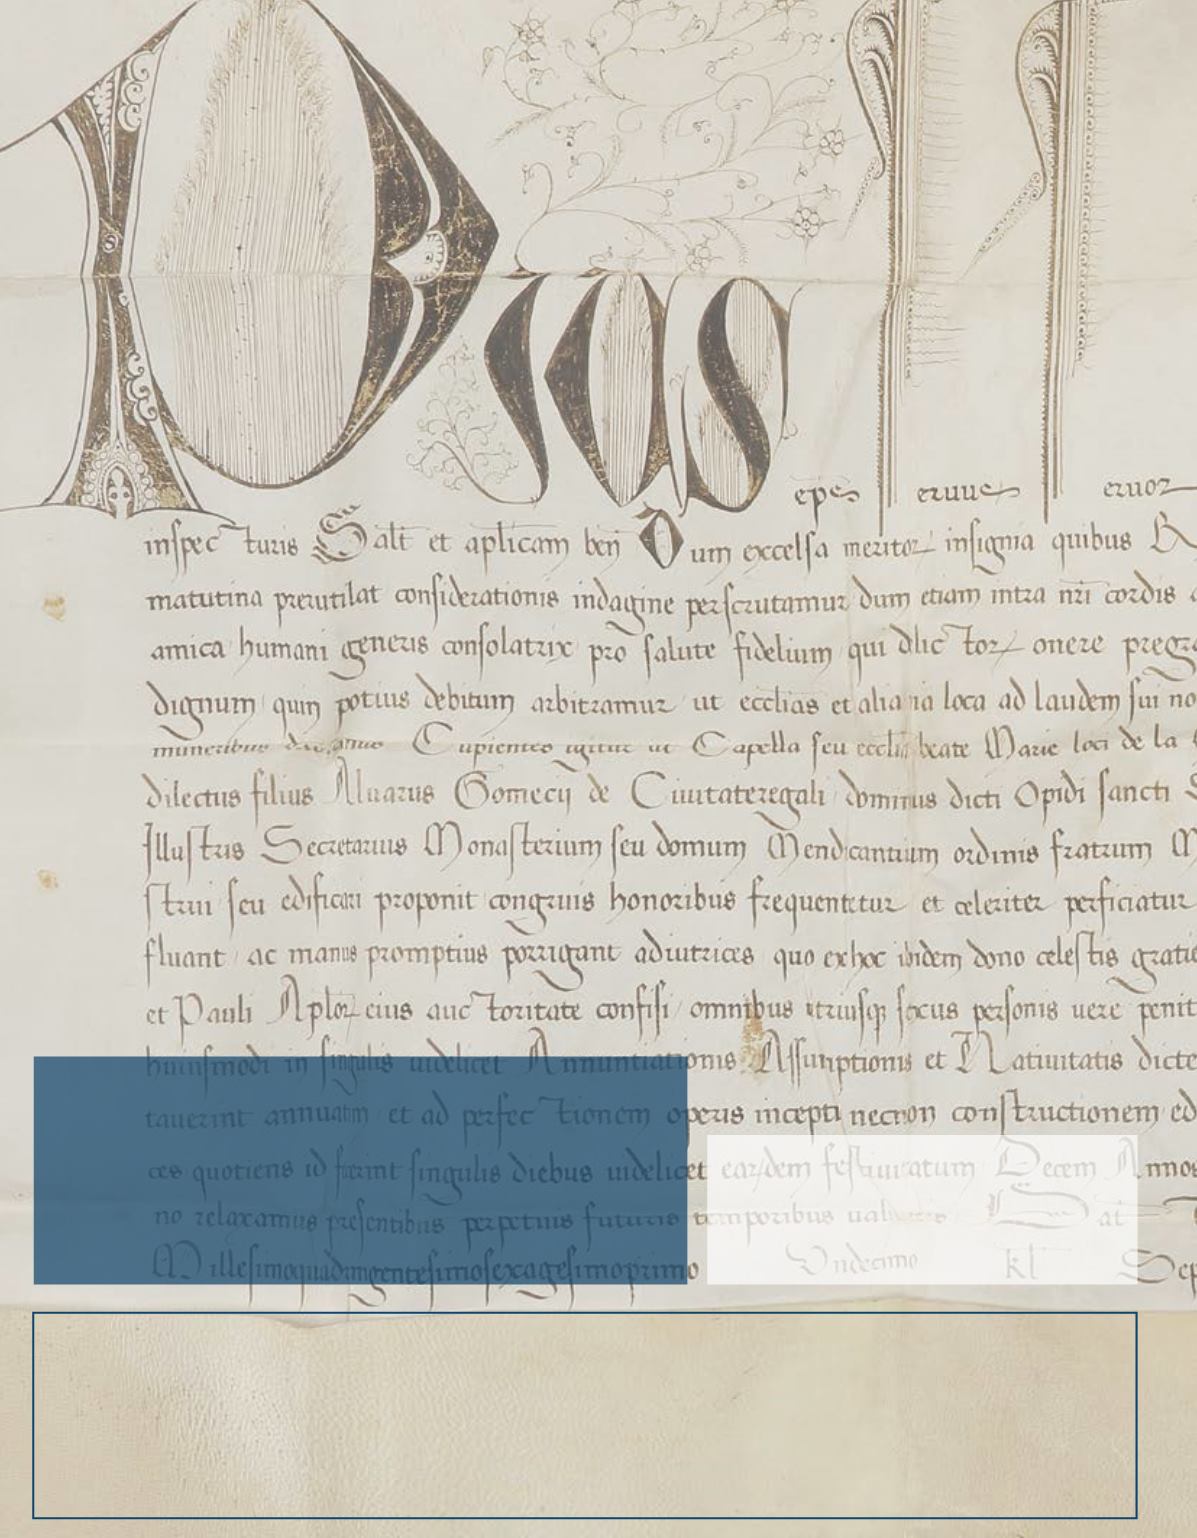 Pius epc seruus seruor
inspecturis Salt et aplicam ben Dum excelsa meritor insignia quibus
matutina prerutilat considerationis indagine perscrutamur dum etiam intra nri cordis
amica humani generis consolatrix pro salute fidelium qui dlictor onere
dignum quin potius debitum arbitramur ut ecclias et alia ia loca ad laudem sui no
muneribus Cupientes igitur ut Capella seu ecclia beate Marie loci de la
dilectus filius Aluarus Gomecij de Ciuitateregali dominus dicti Opidi sancti
Illustris Secretarius Monasterium seu domum Mendicantium ordinis fratrum M
strui seu edificari proponit congruis honoribus frequentetur et celeriter perficiatur
fluant ac manus promptius porrigant adiutrices quo ex hoc ibidem dono celestis gratie
et Pauli Aplor eius auctoritate confisi omnibus utriusq sexus personis uere penit
huiusmodi in singulis uidelicet Annuntiationis Assumptionis et Natiuitatis dicte
tauerint annuatim et ad perfectionem operis incepti necnon constructionem ed
ces quotiens id fecerint singulis diebus uidelicet earundem festiuitatum Decem Annos
no relaxamus presentibus perpetuis futuris temporibus ualituris Dat
Millesimoquadringentesimosexagesimoprimo Undecimo kl Sep